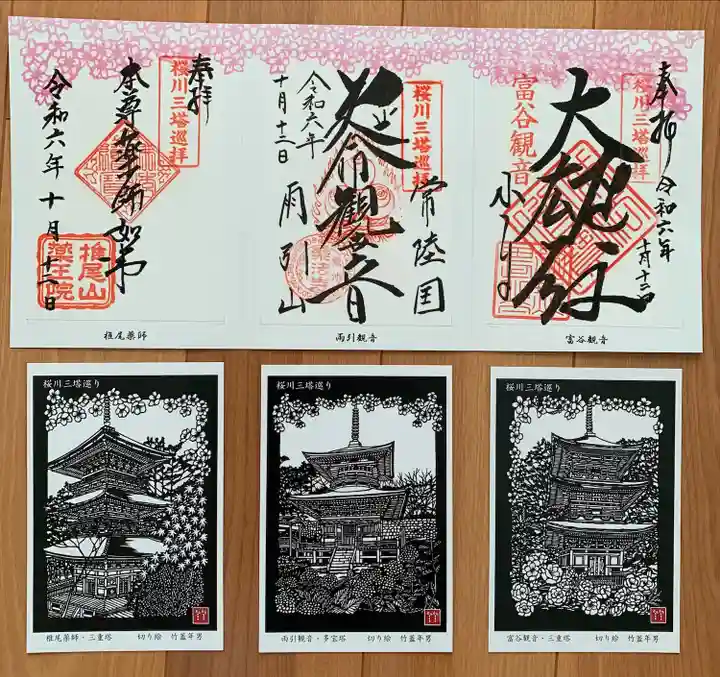 奉拝
桜川三塔巡拝
本尊薬師如来
令和六年十月十二日
椎尾山
薬王院
椎尾薬師
常陸国
桜川三塔巡拝
延命観音
令和六年
十月十二日
雨引山
雨引観音
奉拝
令和六年
十月十二日
桜川三塔巡拝
富谷観音
椎尾薬師・三重塔 切り絵 竹蓋年男
富谷観音
桜川三塔巡り
桜川三塔巡り
雨引観音・多宝塔 切り絵 竹蓋年男
桜川三塔巡り
富谷観音・三重塔 切り絵 竹蓋年男